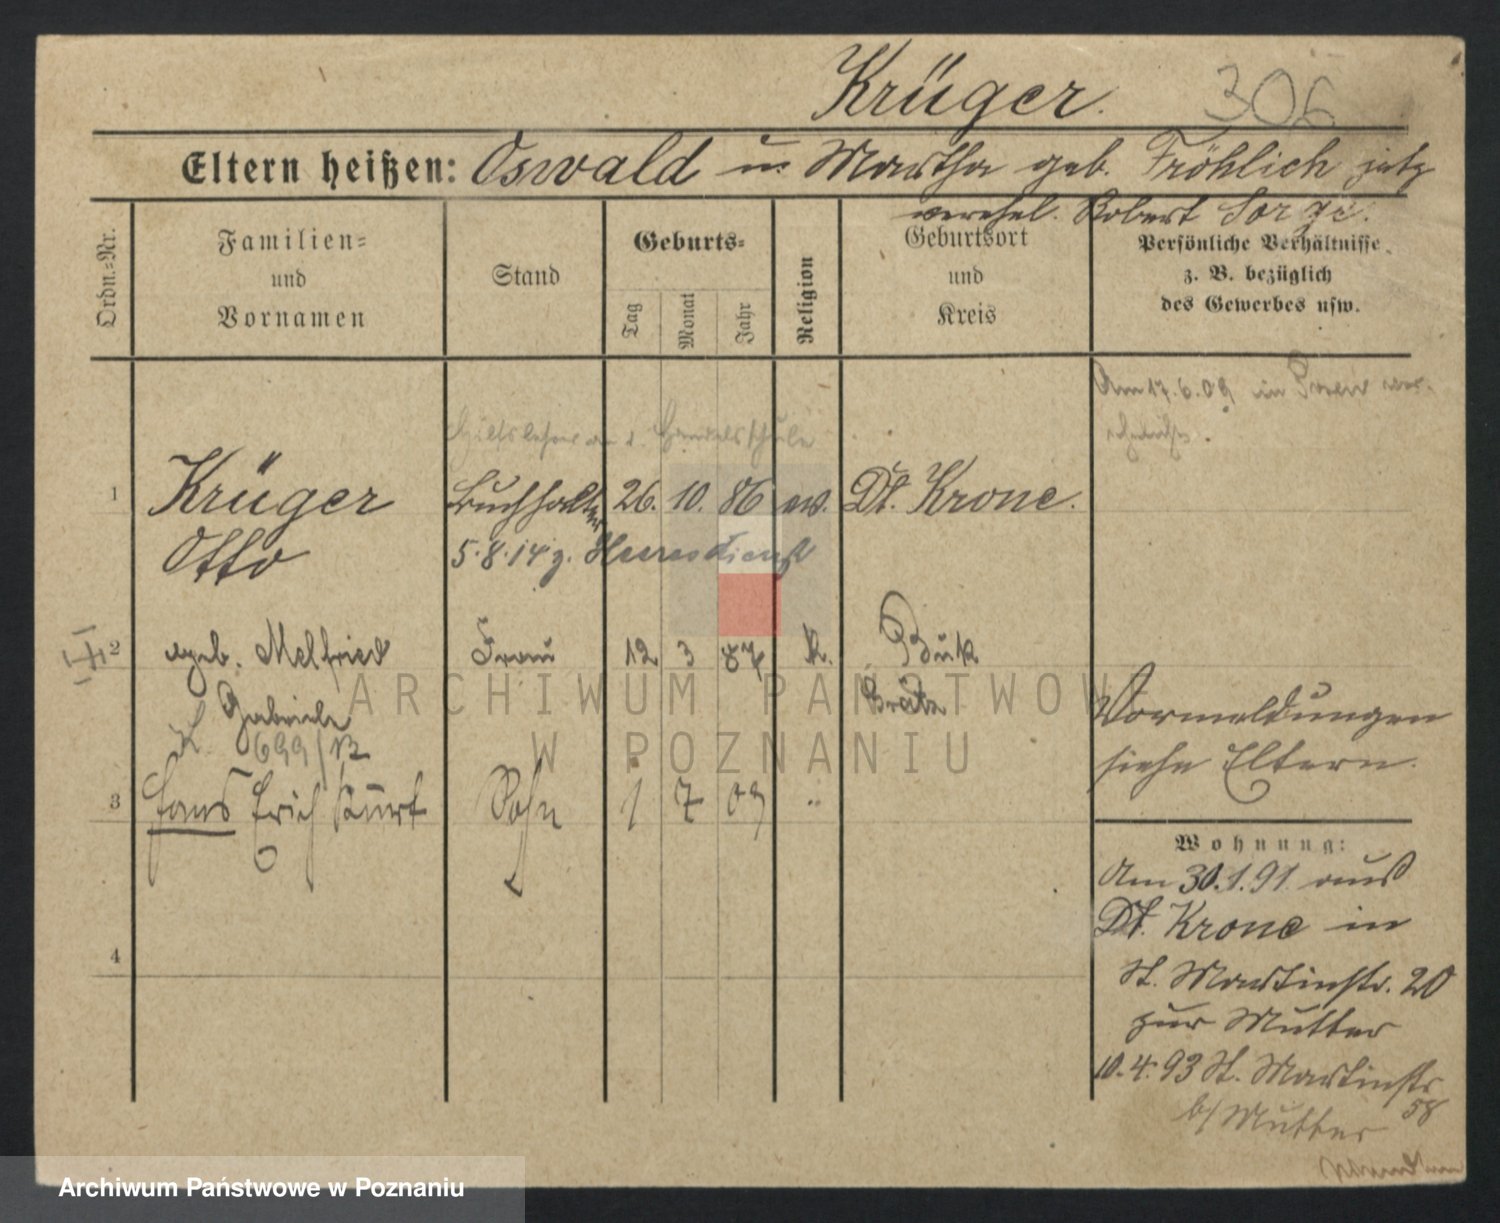 Krüger. 306
Eltern heißen: Oswald u. Martha geb. Fröhlich jetz
verehel. Robert Sorge.
Ordn.=Nr.
Familien=
und
Vornamen
Stand
Geburts=
Tag
Monat
Jahr
Religion
Geburtsort
und
Kreis
Persönliche Verhältnisse
z. B. bezüglich
des Gewerbes usw.
Am 17.6.09 in Posen
Hilfslehrer a. d. Handelsschule
1 Krüger Buchhalter 26. 10. 86 ev. Dt. Krone.
Otto 5.8.14 z. Heeresdienst
2 geb. Melfried Frau 12 3 87 K. Buk
Gabriele Grätz
K. 699/12
Vormeldungen
siehe Eltern.
3 Hans Erich Kurt Sohn 1 7 09 "
4
Wohnung:
Am 30.1.91 aus
Dt. Krone in
St. Martinstr. 20
zur Mutter
10.4.93 St. Martinstr
58
b/ Mutter
ARCHIWUM PAŃSTWOWE
W POZNANIU
Archiwum Państwowe w Poznaniu